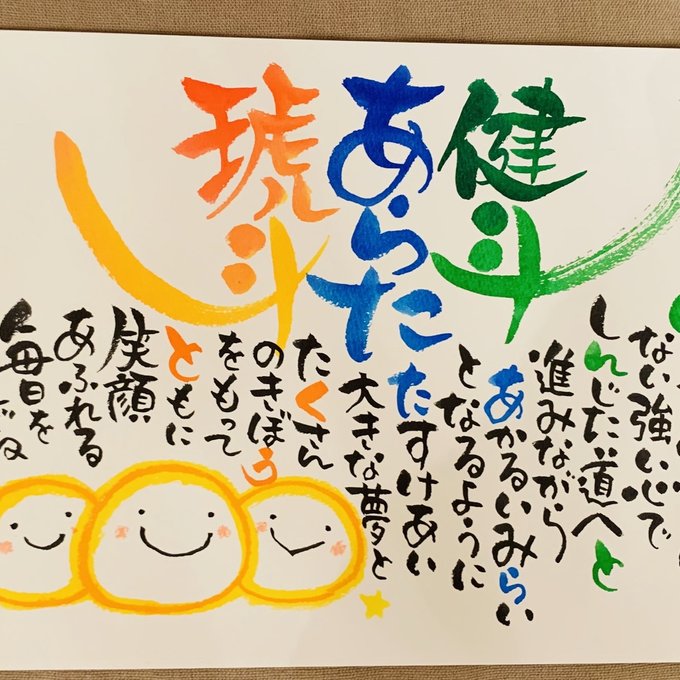 健斗
あらた
琥斗
ない強い心で
しんじた道へと
進みながら
あかるいみらい
となるように
たすけあい
大きな夢と
たくさん
のきぼう
をもって
ともに
笑顔
あふれる
毎日を